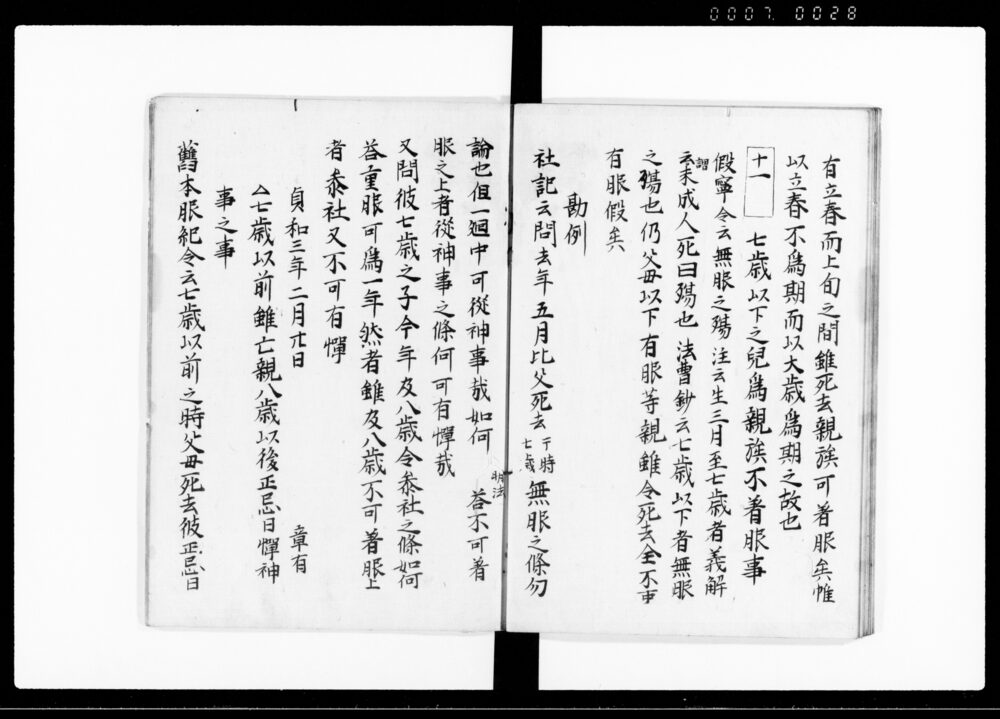 0007 0028
有立春而上旬之間雖死去親族可着服矣惟
以立春不爲期而以大歳爲期之故也
十一 七歳以下之兒爲親族不着服事
假寧令云無服之殤注云生三月至七歳者義解
云未成人死曰殤也法曹鈔云七歳以下者無服
謂
之殤也仍父母以下有服等親雖令死去全不可
有服假矣
勘例
社記云問去年五月比父死去于時七歳無服之條勿
論也但一廻中可從神事哉如何 答不可着
明法
服之上者從神事之條何可有憚哉
又問彼七歳之子今年及八歳令叅社之條如何
答重服可爲一年然者雖及八歳不可着服上
者叅社又不可有憚
貞和三年二月廿日 章有
亼七歳以前雖亡親八歳以後正忌日憚神
事之事
舊本服紀令云七歳以前之時父母死去彼正忌日